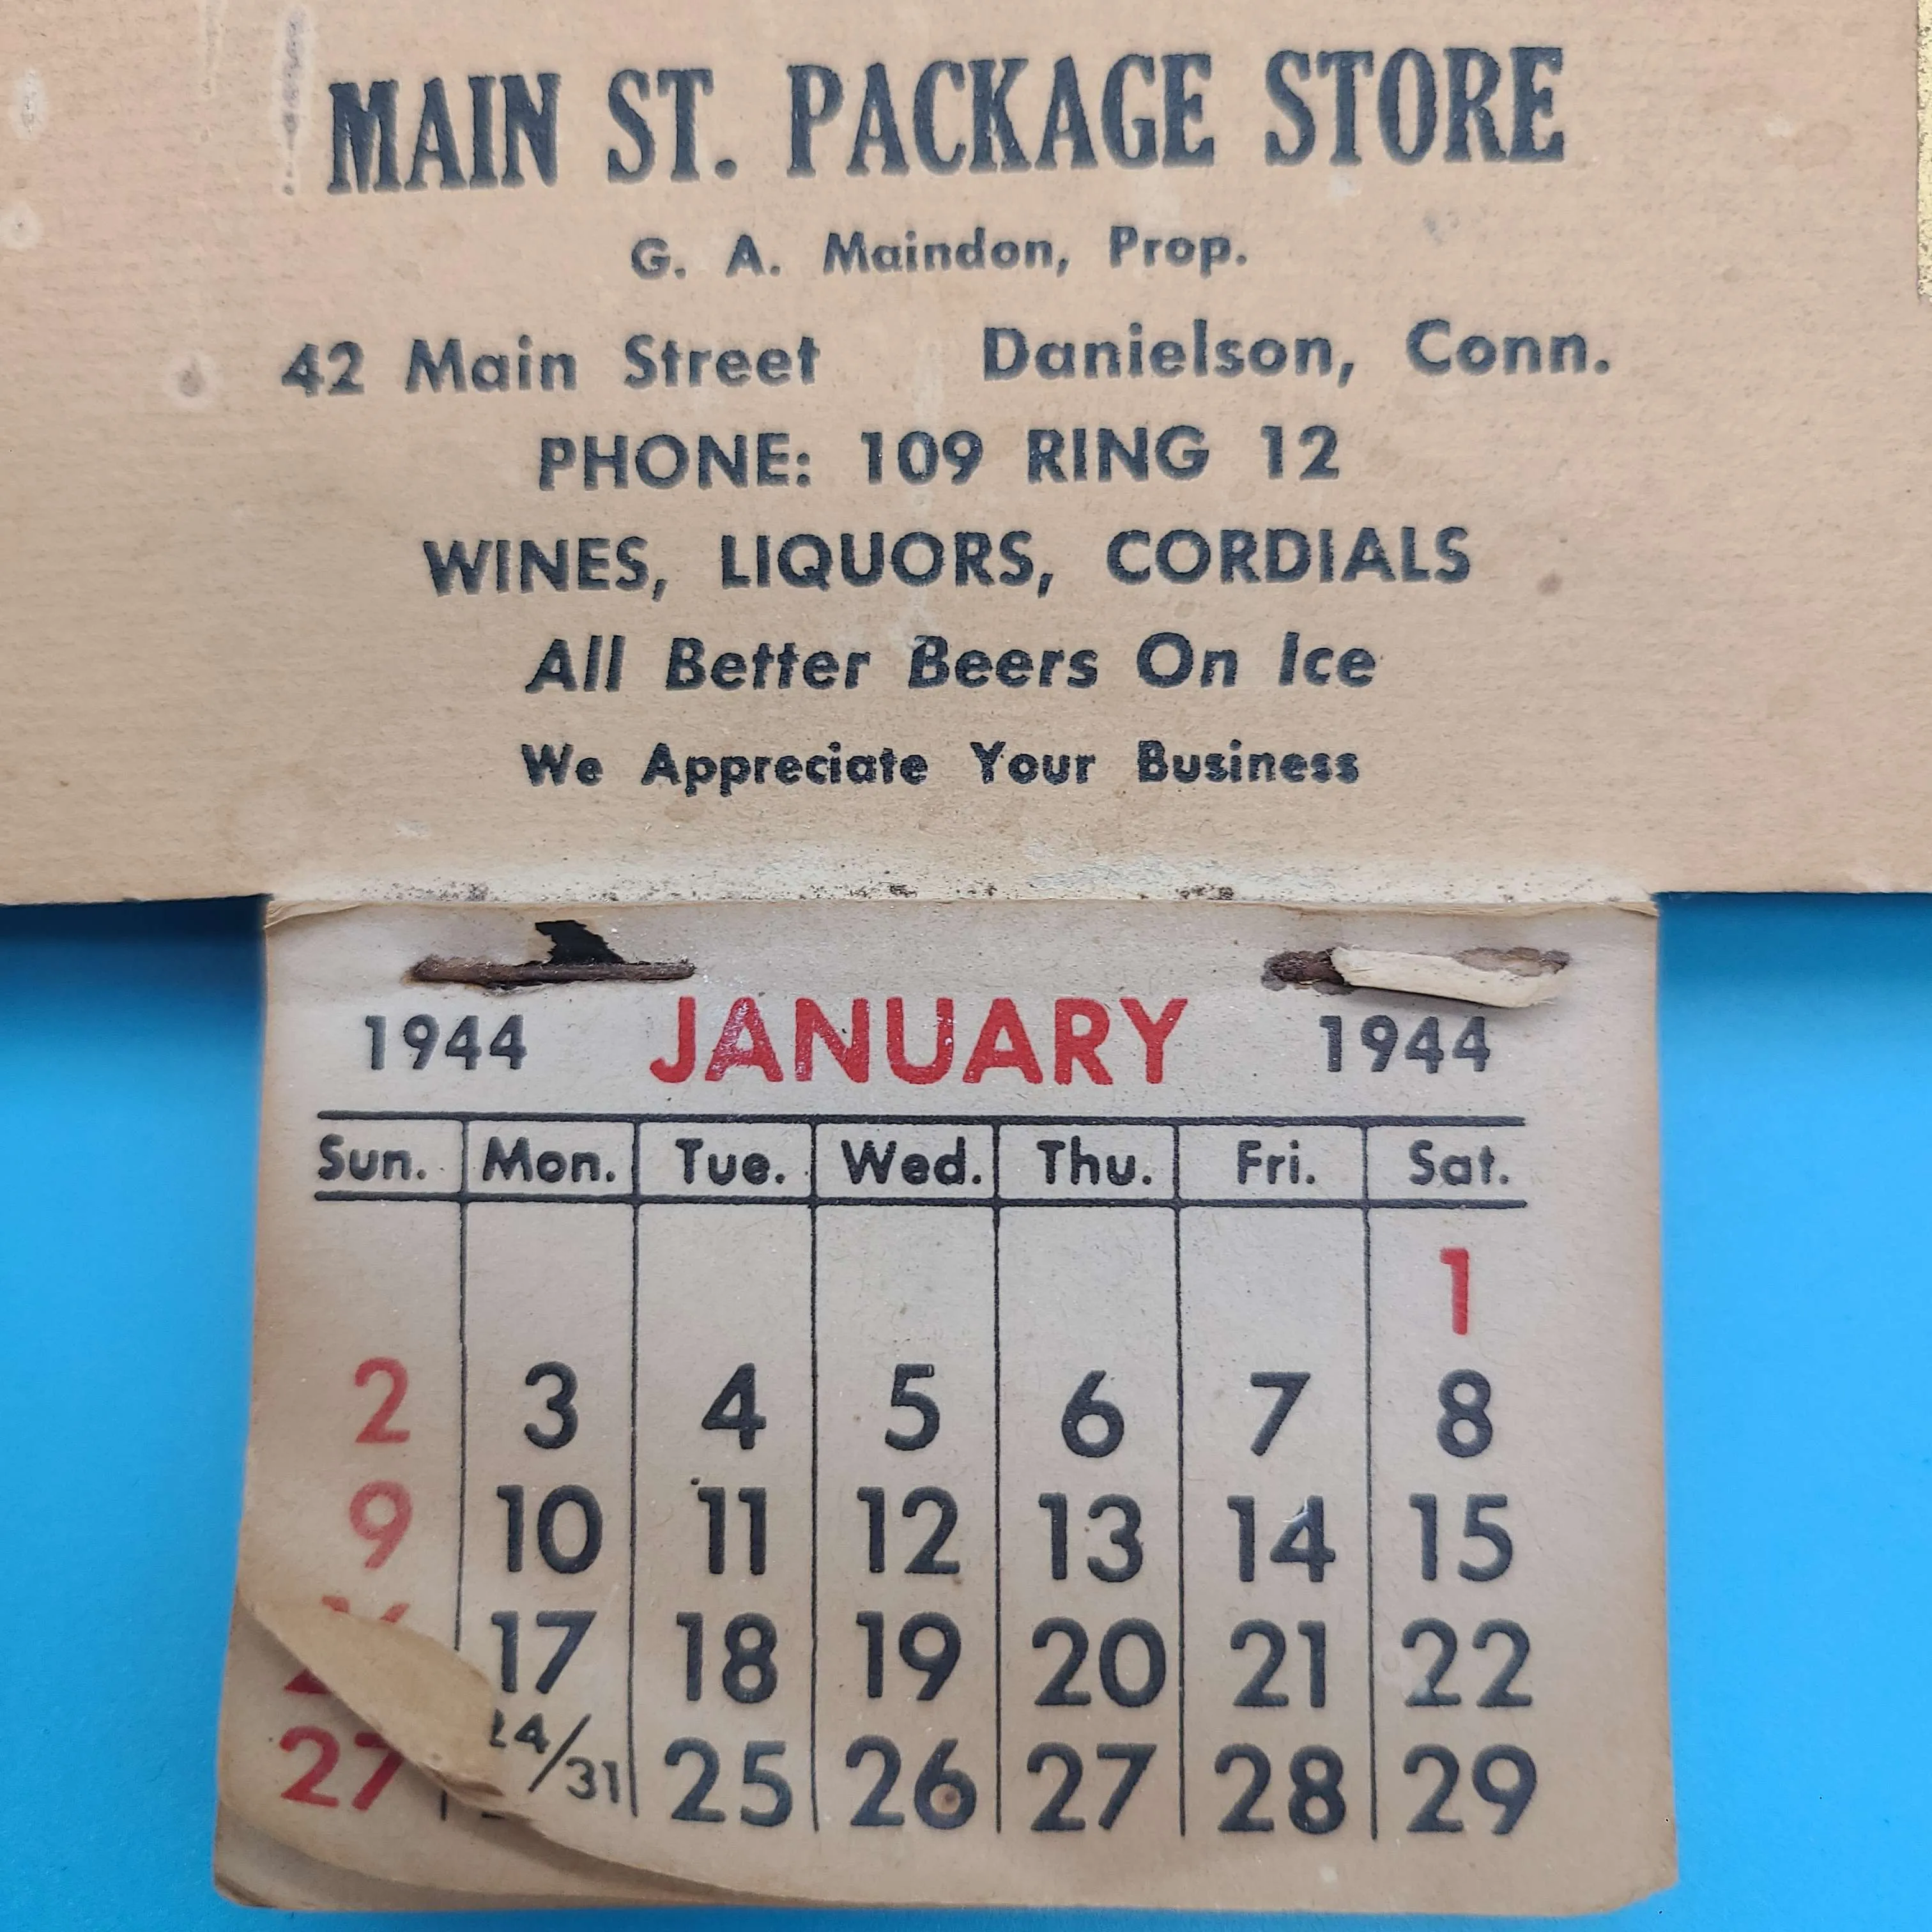 MAIN ST. PACKAGE STORE
G. A. Maindon, Prop.
42 Main Street Danielson, Conn.
PHONE: 109 RING 12
WINES, LIQUORS, CORDIALS
All Better Beers On Ice
We Appreciate Your Business
1944 JANUARY 1944
Sun. Mon. Tue. Wed. Thu. Fri. Sat.
1
2 3 4 5 6 7 8
9 10 11 12 13 14 15
17 18 19 20 21 22
27 24/31 25 26 27 28 29